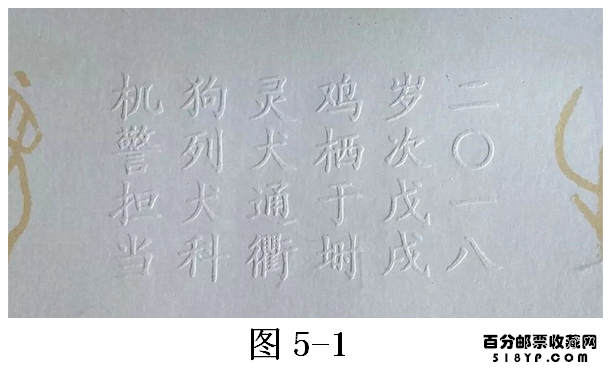 二〇一八
岁次戊戌
鸡栖于埘
灵犬通衢
狗列犬科
机警担当
图 5-1
百分邮票收藏网
518YP.COM